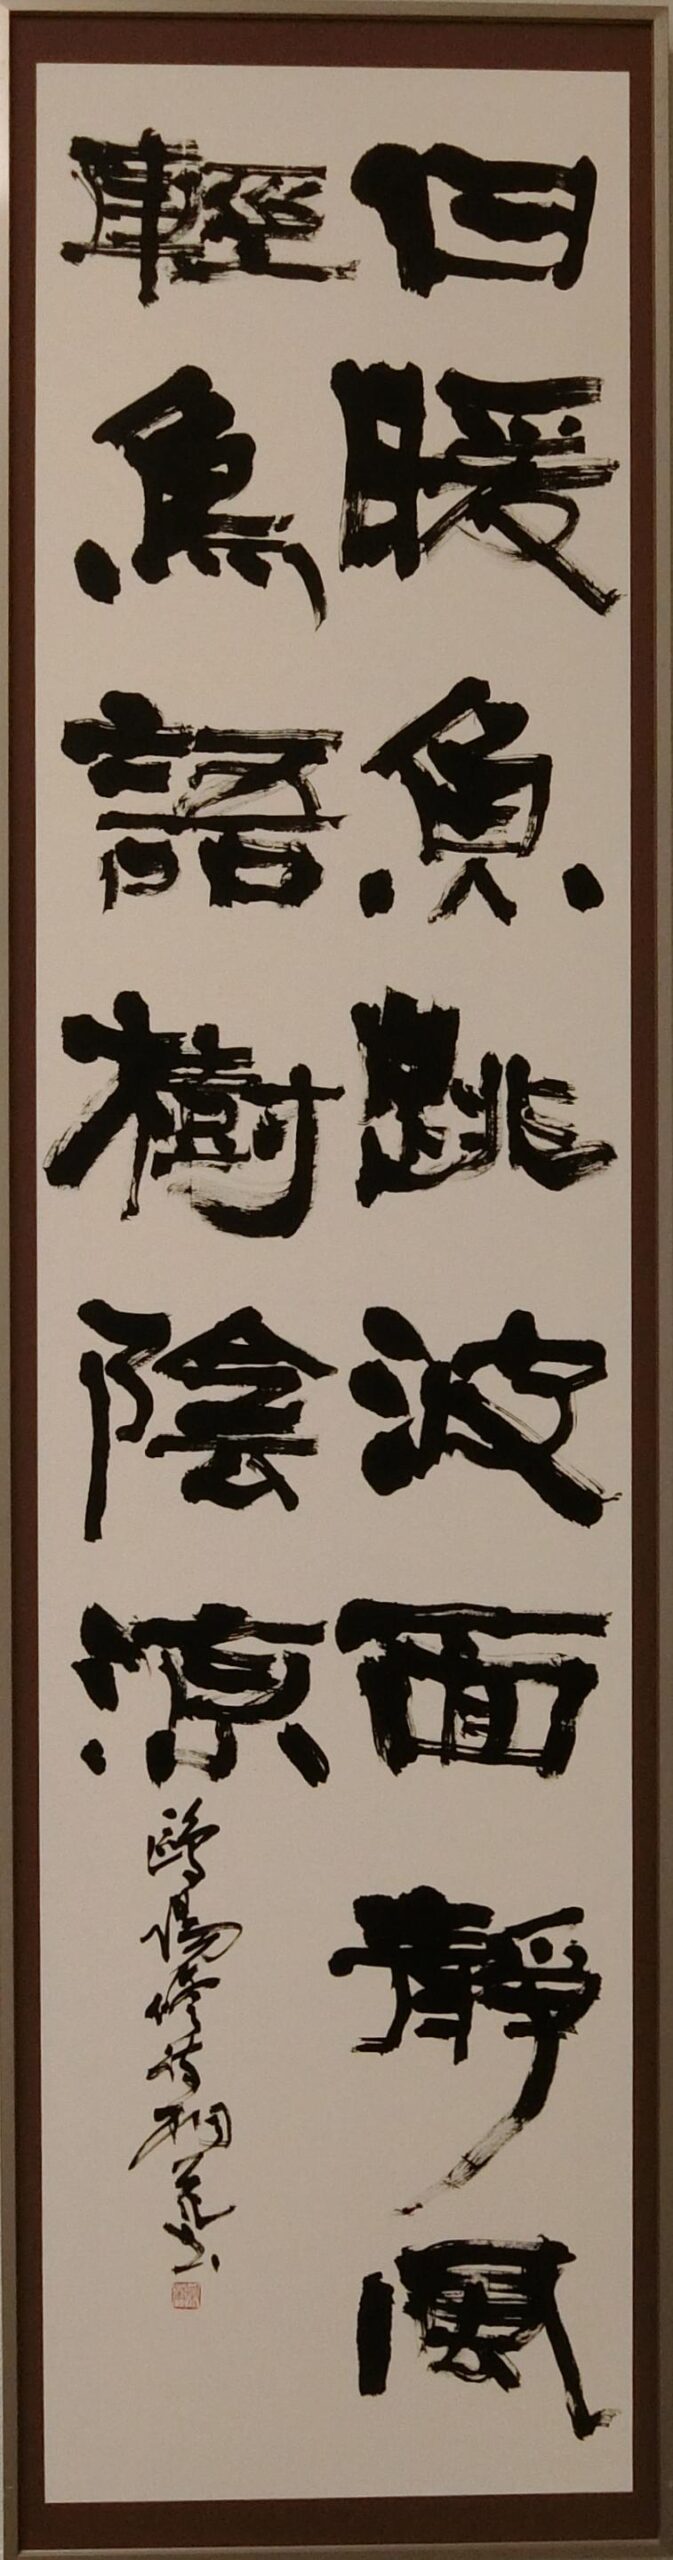 日暖魚跳波面靜風
輕鳥語樹陰涼
鷗陽修詩桐苑書